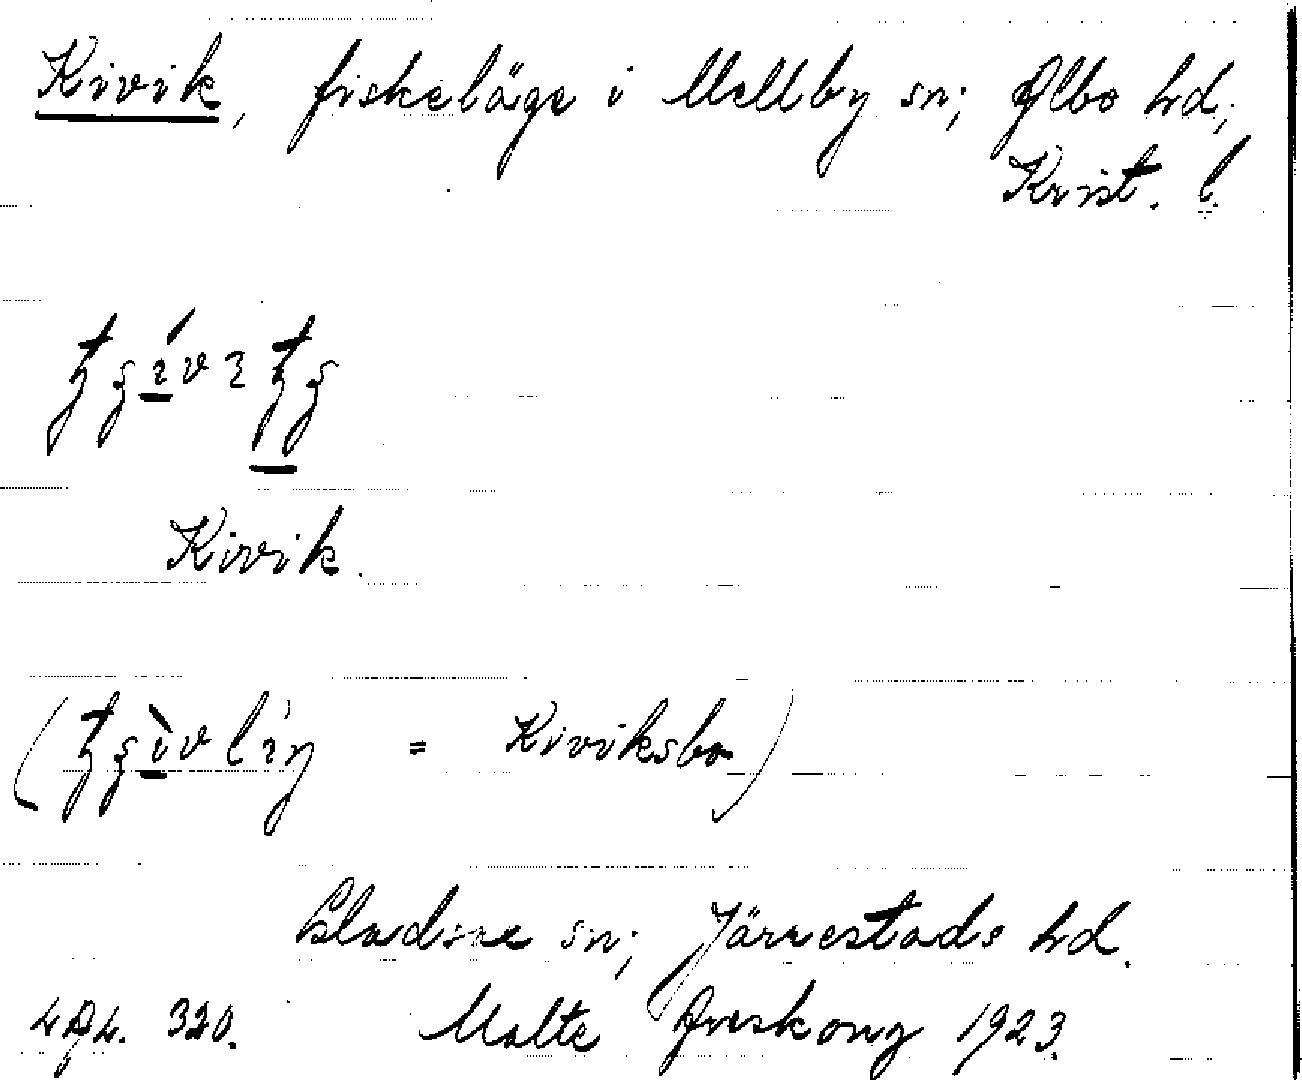 Kivik, fiskeläge i Mellby sn; Albo hd;
Krist. l.
Kivik.
= Kiviksbo)
Gladsax sn; Järrestads hd.
320. Malte Areskoug 1923.